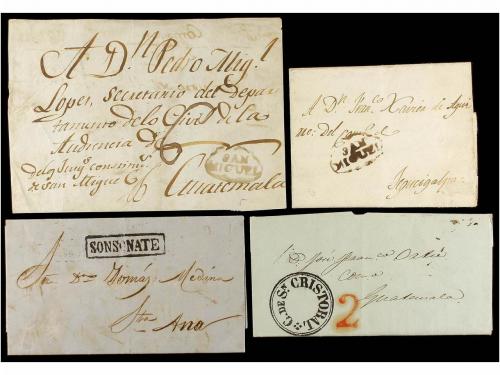 A. Dn. Pedro Mig.l
Lopez, Secretario del Depar
tamento de lo Civil de la
Audiencia de
del Juzg.o constituc.l
de San Miguel
Guatemala
SAN
MIGUEL
A Dn. Fran.co Xavier de Aqui
no: del
SAN
MIGUEL
Tegucigalpa
SONSONATE
Sr. Dn. Tomás Medina
Sta. Ana
Dn. José Franco
Guatemala
C. DE Sn. CRISTOBAL
2